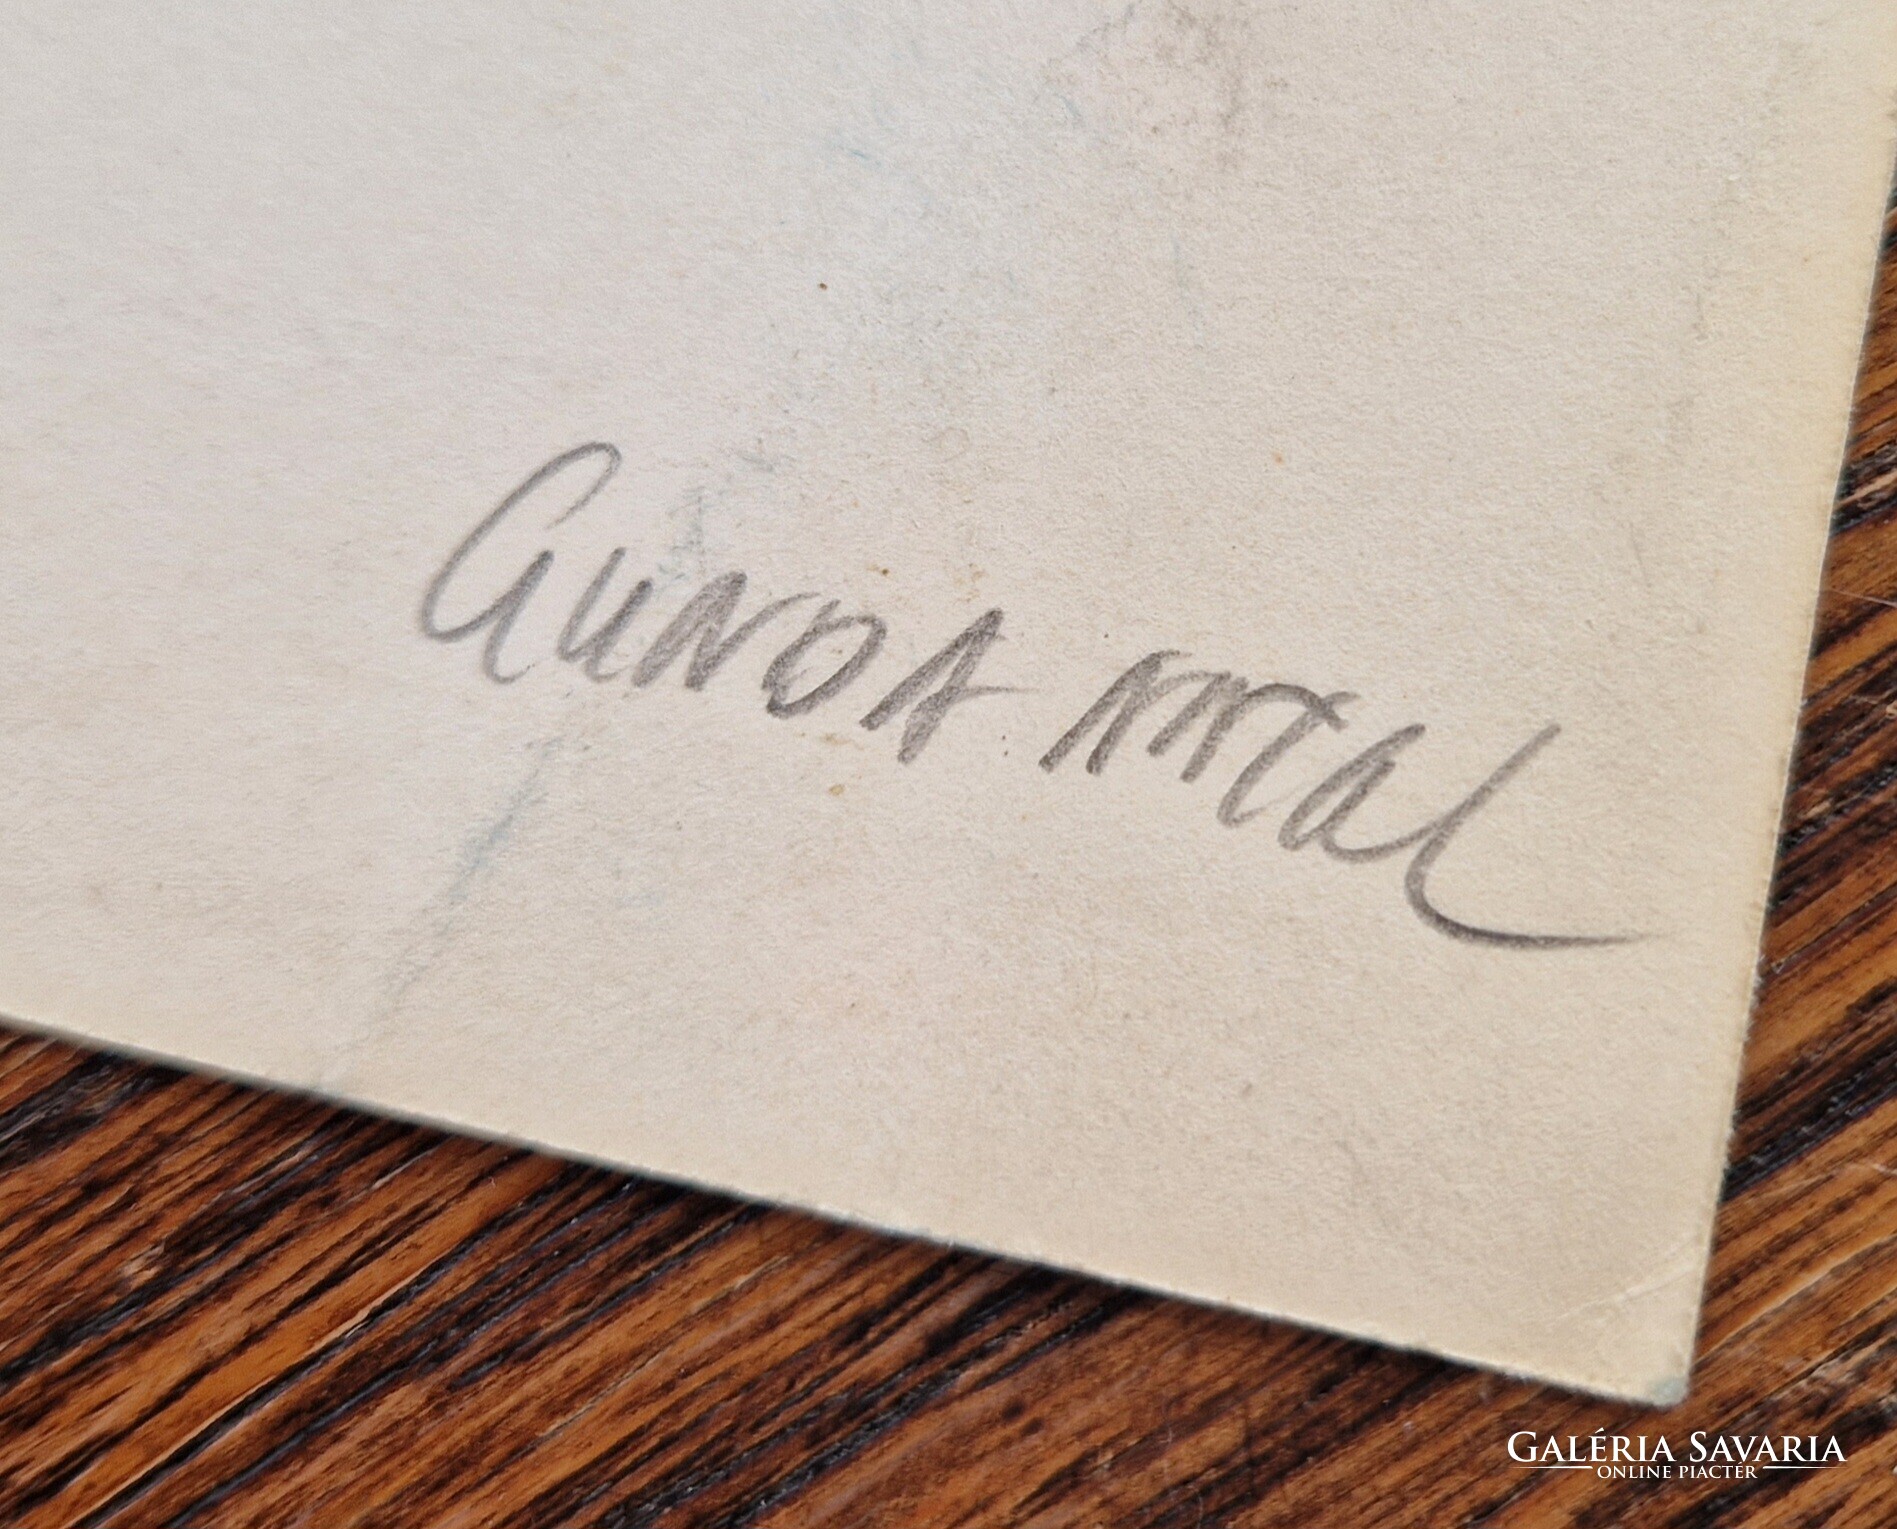 GUNDA ANTAL
GALÉRIA SAVARIA
ONLINE PIACTÉR